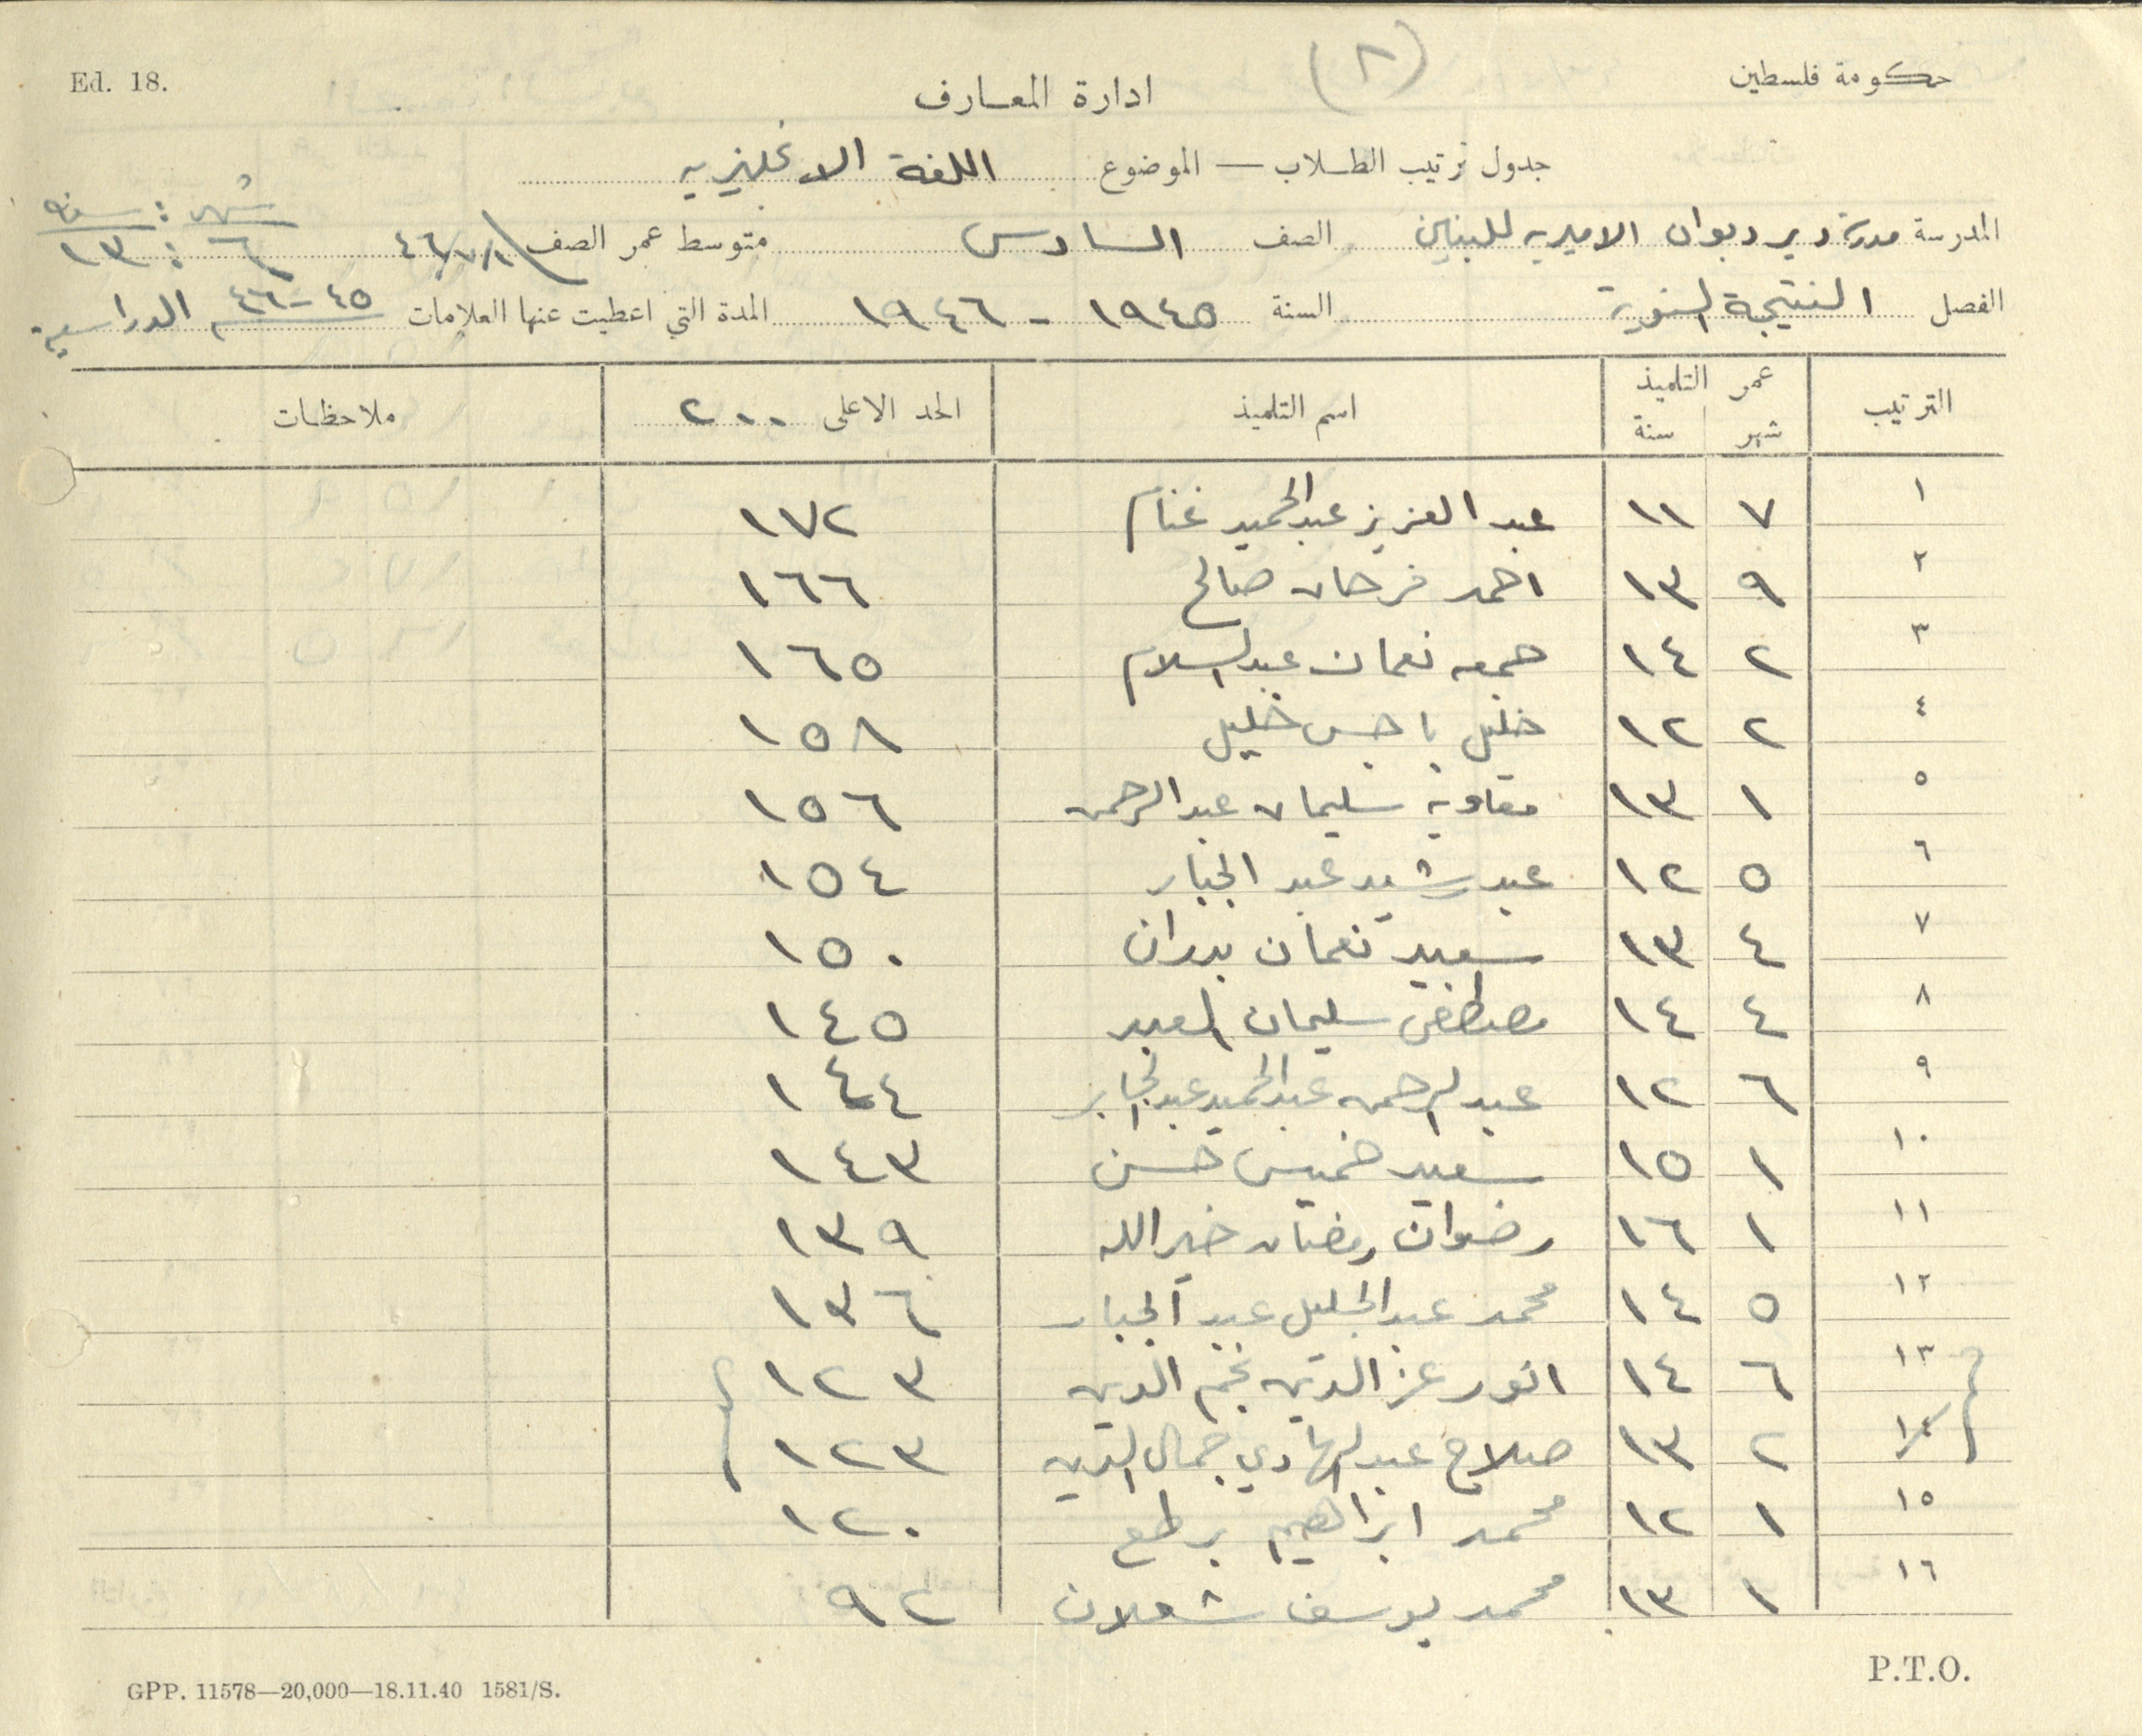 Ed. 18.
(٨)
حكومة فلسطين
ادارة المعارف
جدول ترتيب الطلاب — الموضوع اللغة الانجليزيه
المدرسة مدرسة دير ديوان الاميريه للبنين الصف السادس متوسط عمر الصف ٤٦/٧/١ شهر : سنه ٦ : ١٣
الفصل النتيجة السنوية السنة ١٩٤٥ - ١٩٤٦ المدة التي اعطيت عنها العلامات ٤٥-٤٦ الدراسية
الترتيب عمر التلميذ شهر سنة اسم التلميذ الحد الاعلى ٢٠٠ ملاحظات
١ ٧ ١١ عبد العزيز عبد الحميد غنام ١٧٢
٢ ٩ ١٣ احمد فرحان صالح ١٦٦
٣ ٢ ١٤ جمعه نعمان عبد السلام ١٦٥
٤ ٢ ١٢ خليل باجس خليل ١٥٨
٥ ١ ١٣ معاويه سليمان عبد الرحمن ١٥٦
٦ ٥ ١٢ عبد رشيد عبد الجبار ١٥٤
٧ ٤ ١٣ سعيد نعمان بدران ١٥٠
٨ ٤ ١٤ مصطفى سليمان العبد ١٤٥
٩ ٦ ١٢ عبد الرحمن عبد الحميد عبد الجابر ١٤٤
١٠ ١ ١٥ سعيد خميس حسن ١٤٣
١١ ١ ١٦ رضوان رمضان خير الله ١٣٩
١٢ ٥ ١٤ محمد عبد الجليل عبد الجبار ١٣٦
١٣ ٦ ١٤ انور عز الدين نجم الدين ١٢٣
١٤ ٢ ١٣ صلاح عبد الهادي جمال الدين ١٢٣
١٥ ١ ١٢ محمد ابراهيم ١٢٠
١٦ ١ ١٣ محمد يوسف شعلان ٩٢
GPP. 11578—20,000—18.11.40 1581/S.
P.T.O.